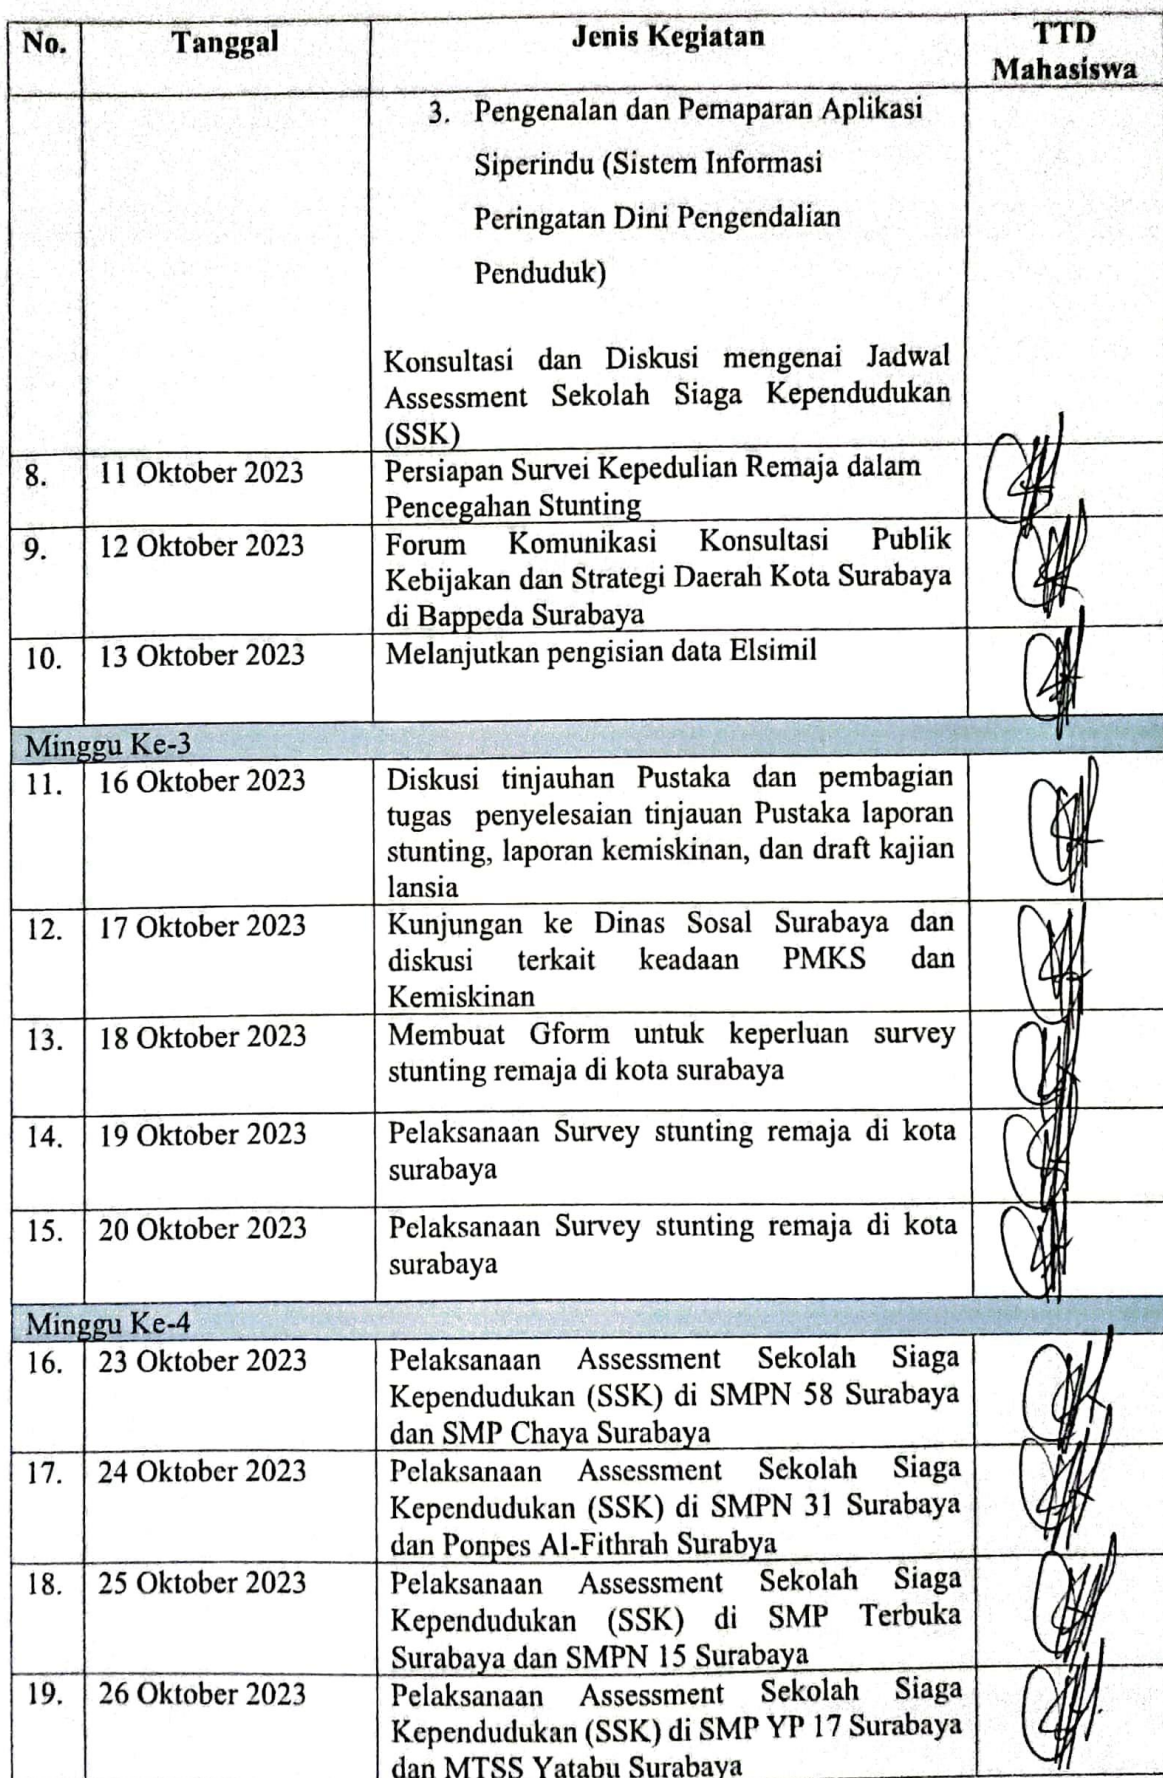 No. Tanggal Jenis Kegiatan TTD
Mahasiswa
3. Pengenalan dan Pemaparan Aplikasi
Siperindu (Sistem Informasi
Peringatan Dini Pengendalian
Penduduk)
Konsultasi dan Diskusi mengenai Jadwal
Assessment Sekolah Siaga Kependudukan
(SSK)
8. 11 Oktober 2023 Persiapan Survei Kepedulian Remaja dalam
Pencegahan Stunting
9. 12 Oktober 2023 Forum Komunikasi Konsultasi Publik
Kebijakan dan Strategi Daerah Kota Surabaya
di Bappeda Surabaya
10. 13 Oktober 2023 Melanjutkan pengisian data Elsimil
Minggu Ke-3
11. 16 Oktober 2023 Diskusi tinjauhan Pustaka dan pembagian
tugas penyelesaian tinjauan Pustaka laporan
stunting, laporan kemiskinan, dan draft kajian
lansia
12. 17 Oktober 2023 Kunjungan ke Dinas Sosal Surabaya dan
diskusi terkait keadaan PMKS dan
Kemiskinan
13. 18 Oktober 2023 Membuat Gform untuk keperluan survey
stunting remaja di kota surabaya
14. 19 Oktober 2023 Pelaksanaan Survey stunting remaja di kota
surabaya
15. 20 Oktober 2023 Pelaksanaan Survey stunting remaja di kota
surabaya
Minggu Ke-4
16. 23 Oktober 2023 Pelaksanaan Assessment Sekolah Siaga
Kependudukan (SSK) di SMPN 58 Surabaya
dan SMP Chaya Surabaya
17. 24 Oktober 2023 Pelaksanaan Assessment Sekolah Siaga
Kependudukan (SSK) di SMPN 31 Surabaya
dan Ponpes Al-Fithrah Surabya
18. 25 Oktober 2023 Pelaksanaan Assessment Sekolah Siaga
Kependudukan (SSK) di SMP Terbuka
Surabaya dan SMPN 15 Surabaya
19. 26 Oktober 2023 Pelaksanaan Assessment Sekolah Siaga
Kependudukan (SSK) di SMP YP 17 Surabaya
dan MTSS Yatabu Surabaya